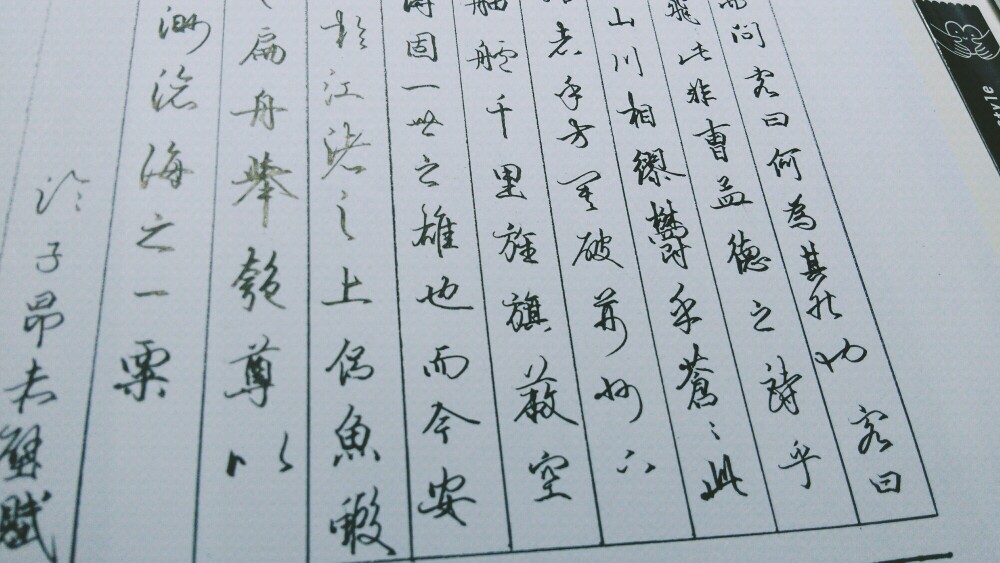 而问客曰何為其然也客曰
飛此非曹孟德之詩乎
山川相繆鬱乎蒼々此
者乎方其破荊州下
舳艫千里旌旗蔽空
詩固一世之雄也而今安
於江渚之上侶魚蝦
扁舟舉匏尊以
渺滄海之一粟
临子昂赤壁賦